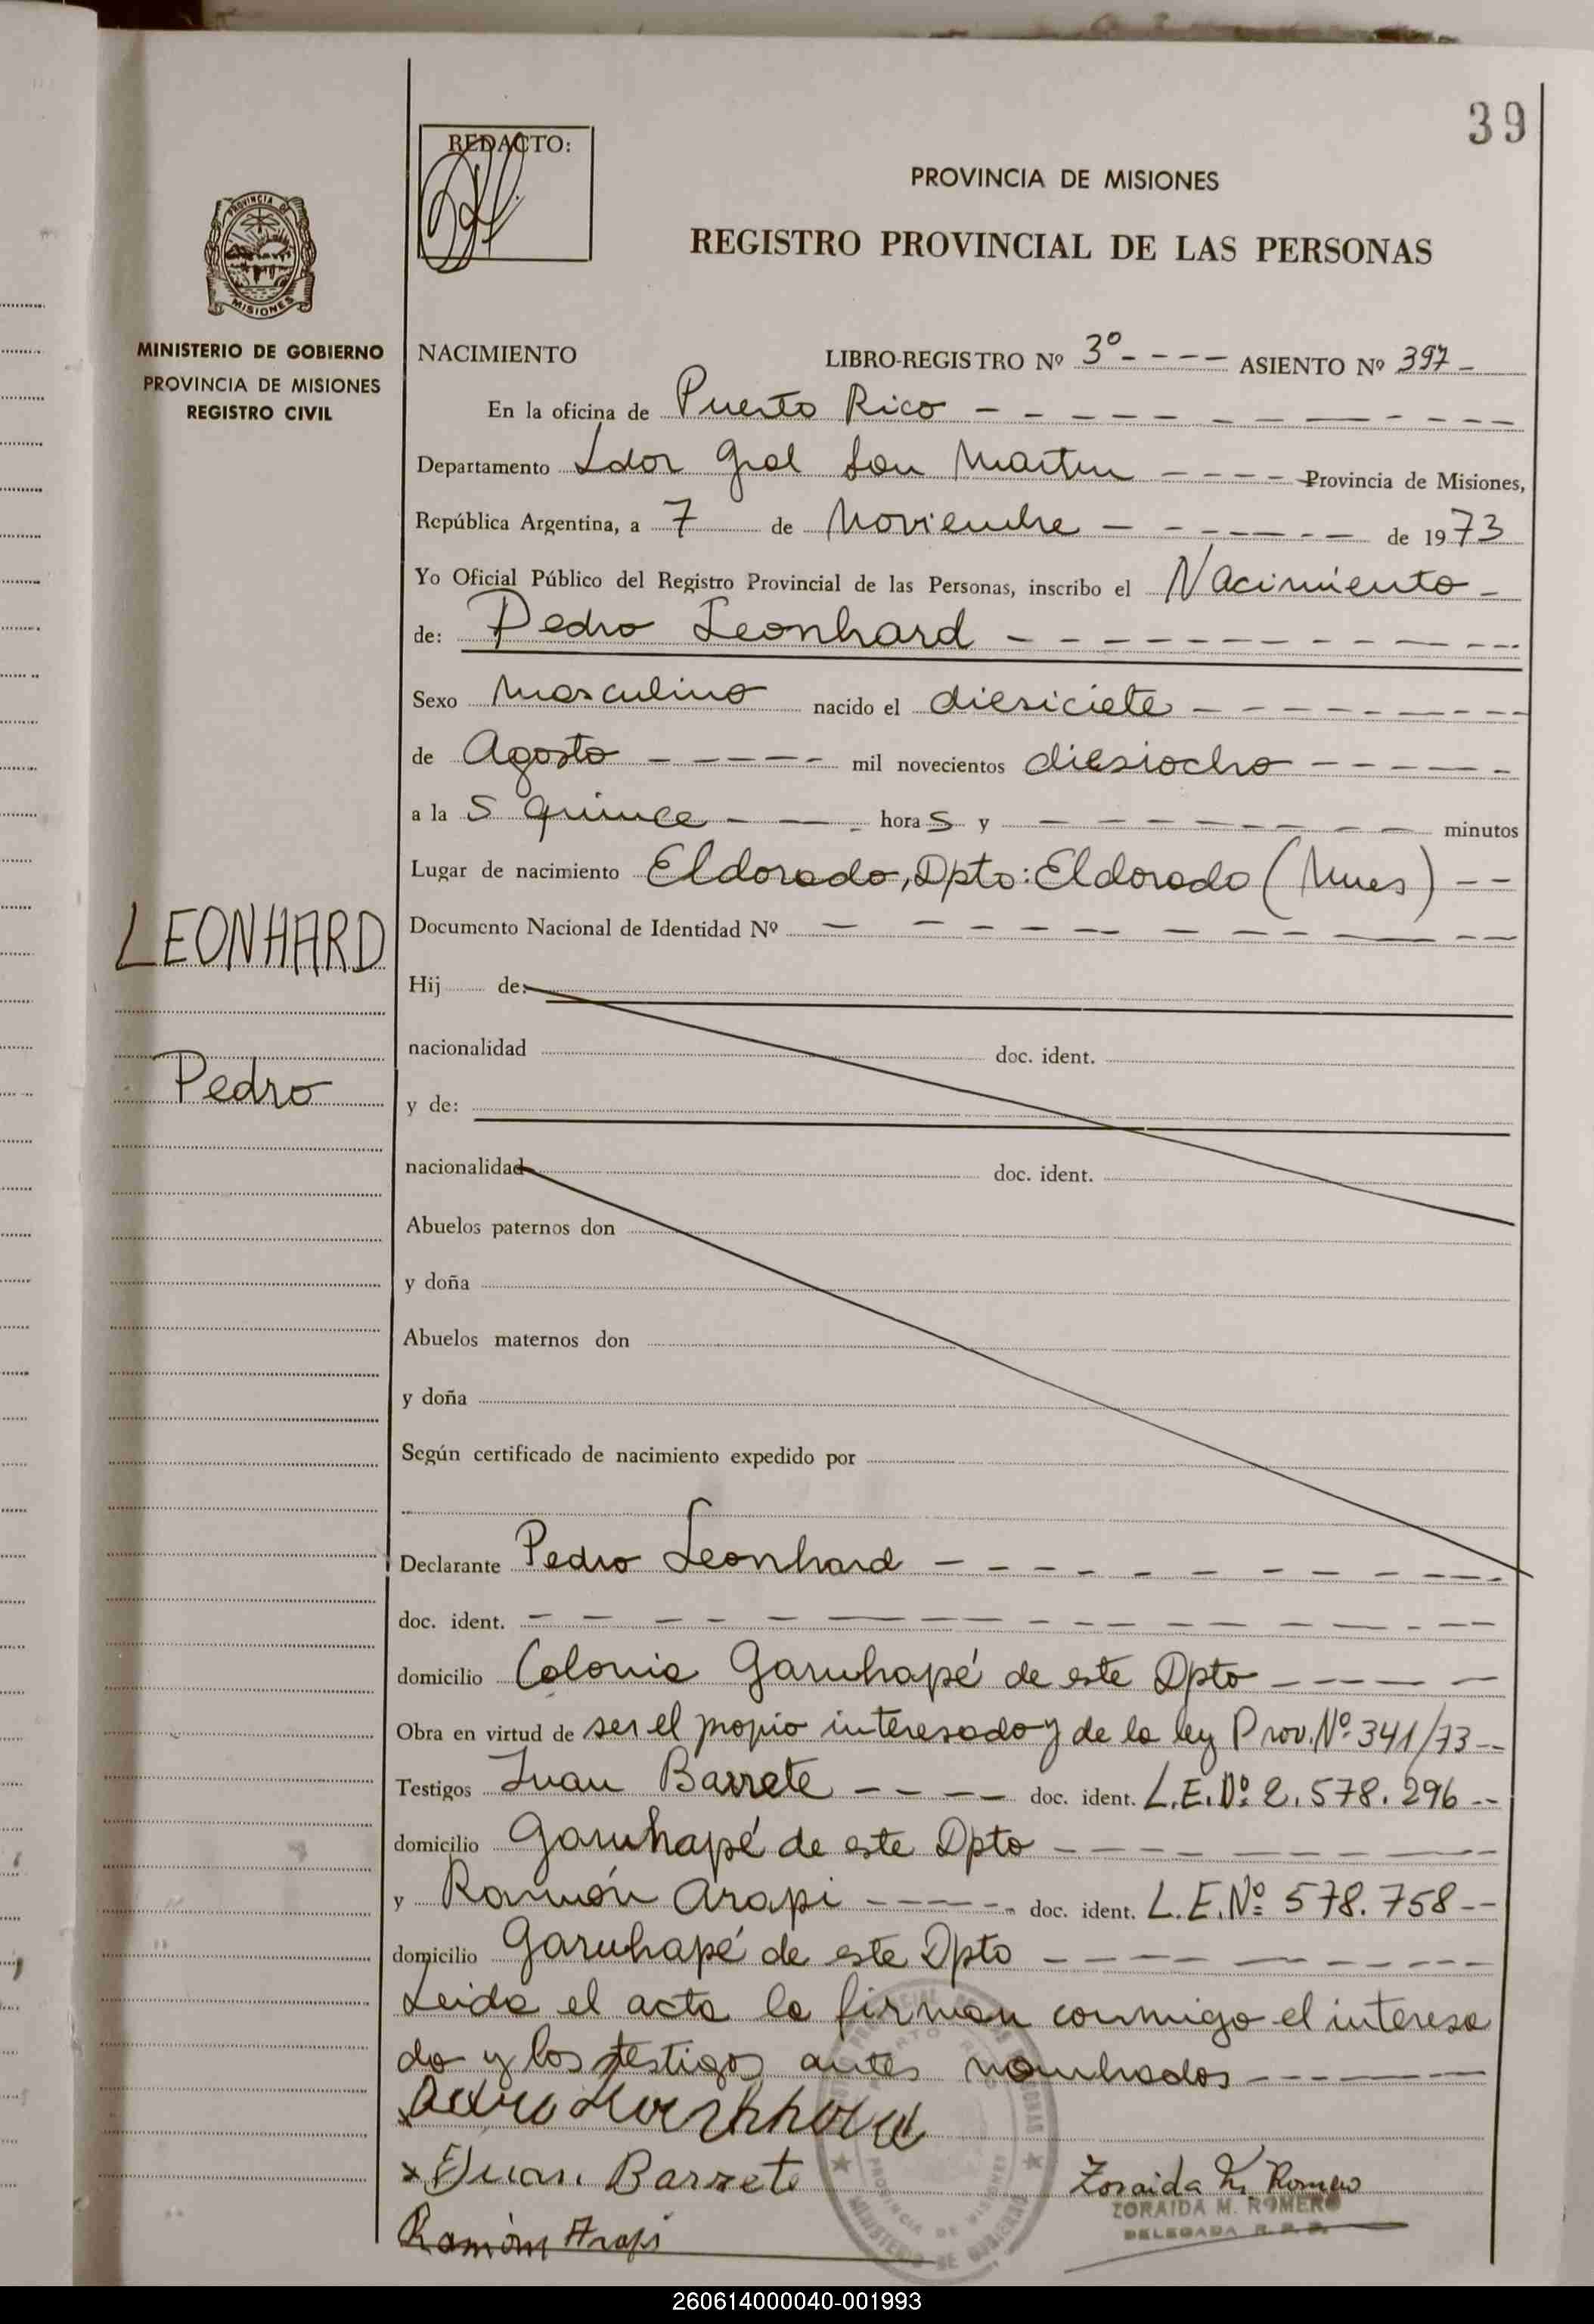 39
REDACTO:
PROVINCIA DE MISIONES
REGISTRO PROVINCIAL DE LAS PERSONAS
PROVINCIA DE
MISIONES
MINISTERIO DE GOBIERNO
PROVINCIA DE MISIONES
REGISTRO CIVIL
NACIMIENTO LIBRO-REGISTRO Nº 3º - - - - ASIENTO Nº 397 -
En la oficina de Puerto Rico - - - - - - - - - -
Departamento Ldor Gral San Martin - - - - Provincia de Misiones,
República Argentina, a 7 de Noviembre - - - - - - - de 1973
Yo Oficial Público del Registro Provincial de las Personas, inscribo el Nacimiento -
de: Pedro Leonhard - - - - - - - - - -
Sexo Masculino nacido el diesiciete - - - - - - - -
de Agosto - - - - - - mil novecientos diesiocho - - - - - -
a la s quince - - - hora s y - - - - - - - - minutos
Lugar de nacimiento Eldorado, Dpto: Eldorado (Mnes) - -
LEONHARD
Pedro
Documento Nacional de Identidad Nº - - - - - - - - - -
Hij de:
nacionalidad doc. ident.
y de:
nacionalidad doc. ident.
Abuelos paternos don
y doña
Abuelos maternos don
y doña
Según certificado de nacimiento expedido por
Declarante Pedro Leonhard - - - - - - - - - -
doc. ident. - - - - - - - - - - - - -
domicilio Colonia Garuhapé de este Dpto - - - - -
Obra en virtud de ser el propio interesado y de la ley Prov. Nº 341/73 - -
Testigos Juan Barrete - - - - doc. ident. L.E. Nº 2.578.296 - -
domicilio Garuhapé de este Dpto - - - - - - - - -
y Ramón Arapi - - - - - doc. ident. L.E. Nº 578.758 - -
domicilio Garuhapé de este Dpto - - - - - - - - -
Leida el acta la firman conmigo el interesa
do y los testigos antes nombrados - - - - - -
x Juan. Barrete
Ramón Arapi
Zoraida M. Romero
ZORAIDA M. ROMERO
DELEGADA R. P. P.
PROVINCIA DE MISIONES
MINISTERIO DE GOBIERNO
260614000040-001993